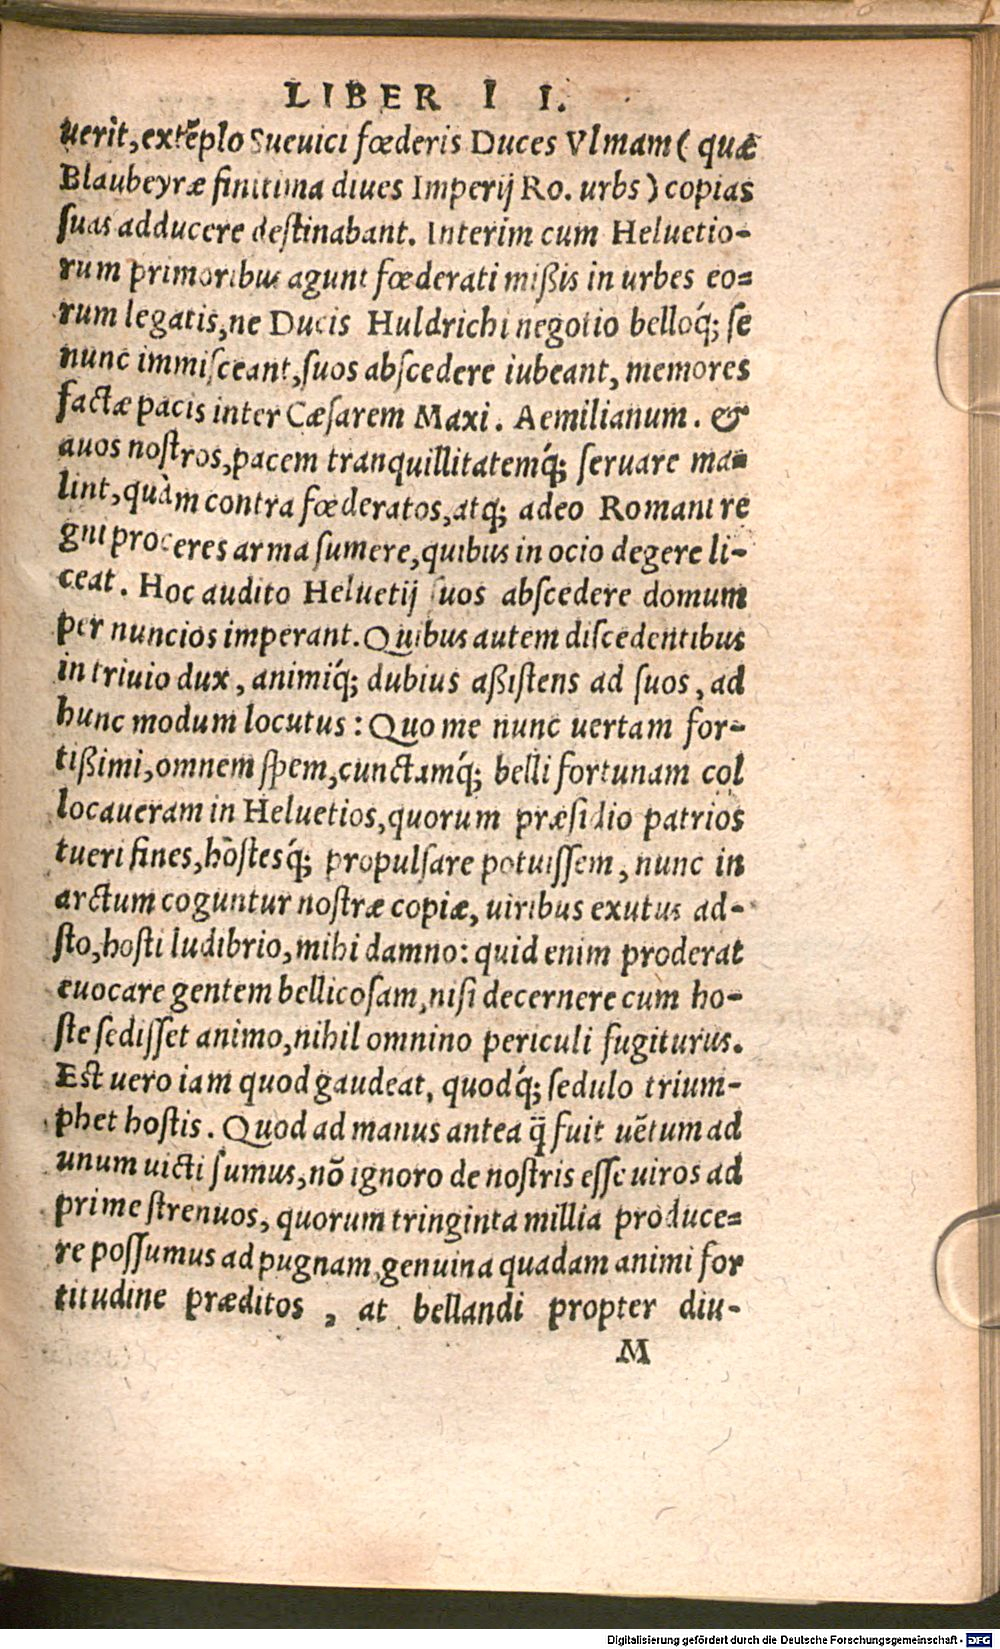 LIBER I I.
uerit, extẽplo Sueuici fœderis Duces Vlmam ( quæ
Blaubeyræ finitima diues Imperij Ro. urbs ) copias
ſuas adducere deſtinabant. Interim cum Heluetio-
rum primoribus agunt fœderati mißis in urbes eo=
rum legatis, ne Ducis Huldrichi negotio belloq́; ſe
nunc immiſceant, ſuos abſcedere iubeant, memores
factæ pacis inter Cæſarem Maxi. Aemilianum. &
auos noſtros, pacem tranquillitatemq́; ſeruare ma=
lint, quàm contra fœderatos, atq; adeo Romani re
gni proceres arma ſumere, quibus in ocio degere li-
ceat. Hoc audito Heluetij ſuos abſcedere domum
per nuncios imperant. Quibus autem diſcedentibus
in triuio dux, animiq́; dubius aßiſtens ad ſuos, ad
hunc modum locutus: Quo me nunc uertam for-
tißimi, omnem ſpem, cunctamq́; belli fortunam col
locaueram in Heluetios, quorum præſidio patrios
tueri fines, hoſtesq́; propulſare potuiſſem, nunc in
arctum coguntur noſtræ copiæ, uiribus exutus ad-
ſto, hoſti ludibrio, mihi damno: quid enim proderat
euocare gentem bellicoſam, niſi decernere cum ho-
ſte ſediſſet animo, nihil omnino periculi fugiturus.
Eſt uero iam quod gaudeat, quodq́; ſedulo trium-
phet hoſtis. Quod ad manus antea q̃ fuit uẽtum ad
unum uicti ſumus, nõ ignoro de noſtris eſſe uiros ad
prime ſtrenuos, quorum tringinta millia produce=
re poſſumus ad pugnam, genuina quadam animi for
titudine præditos , at bellandi propter diu-
M
Digitalisierung gefördert durch die Deutsche Forschungsgemeinschaft - DFG